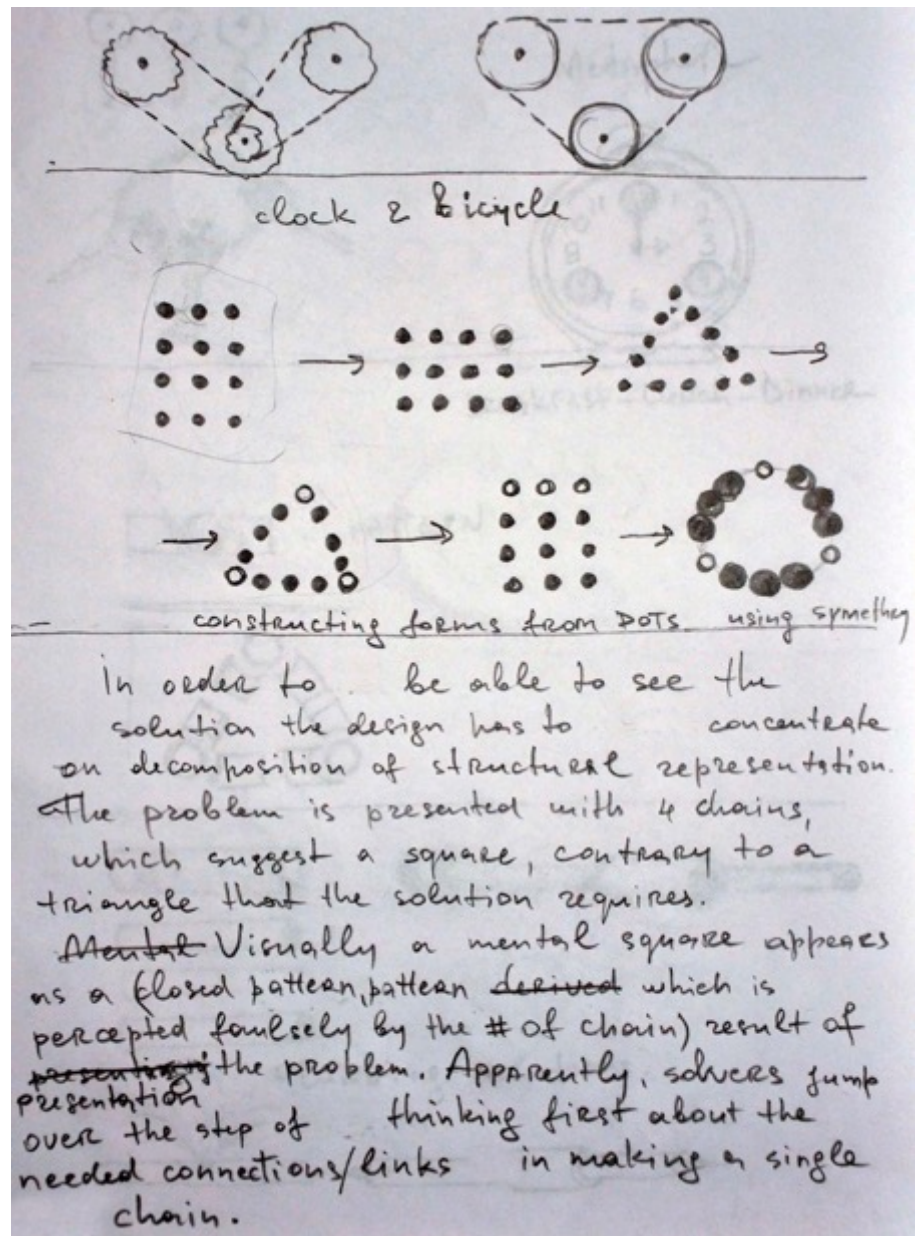 clock & Bicycle
constructing forms from DOTs using symethry
In order to be able to see the
solution the design has to concentrate
on decomposition of structural representation.
The problem is presented with 4 chains,
which suggest a square, contrary to a
triangle that the solution requires.
Mental Visually a mental square appears
as a (closed pattean, pattean derived which is
percepted faulsely by the # of chain) result of
presenting the problem. Apparently, solvers jump
presentation
over the step of thinking first about the
needed connections/links in making a single
chain.